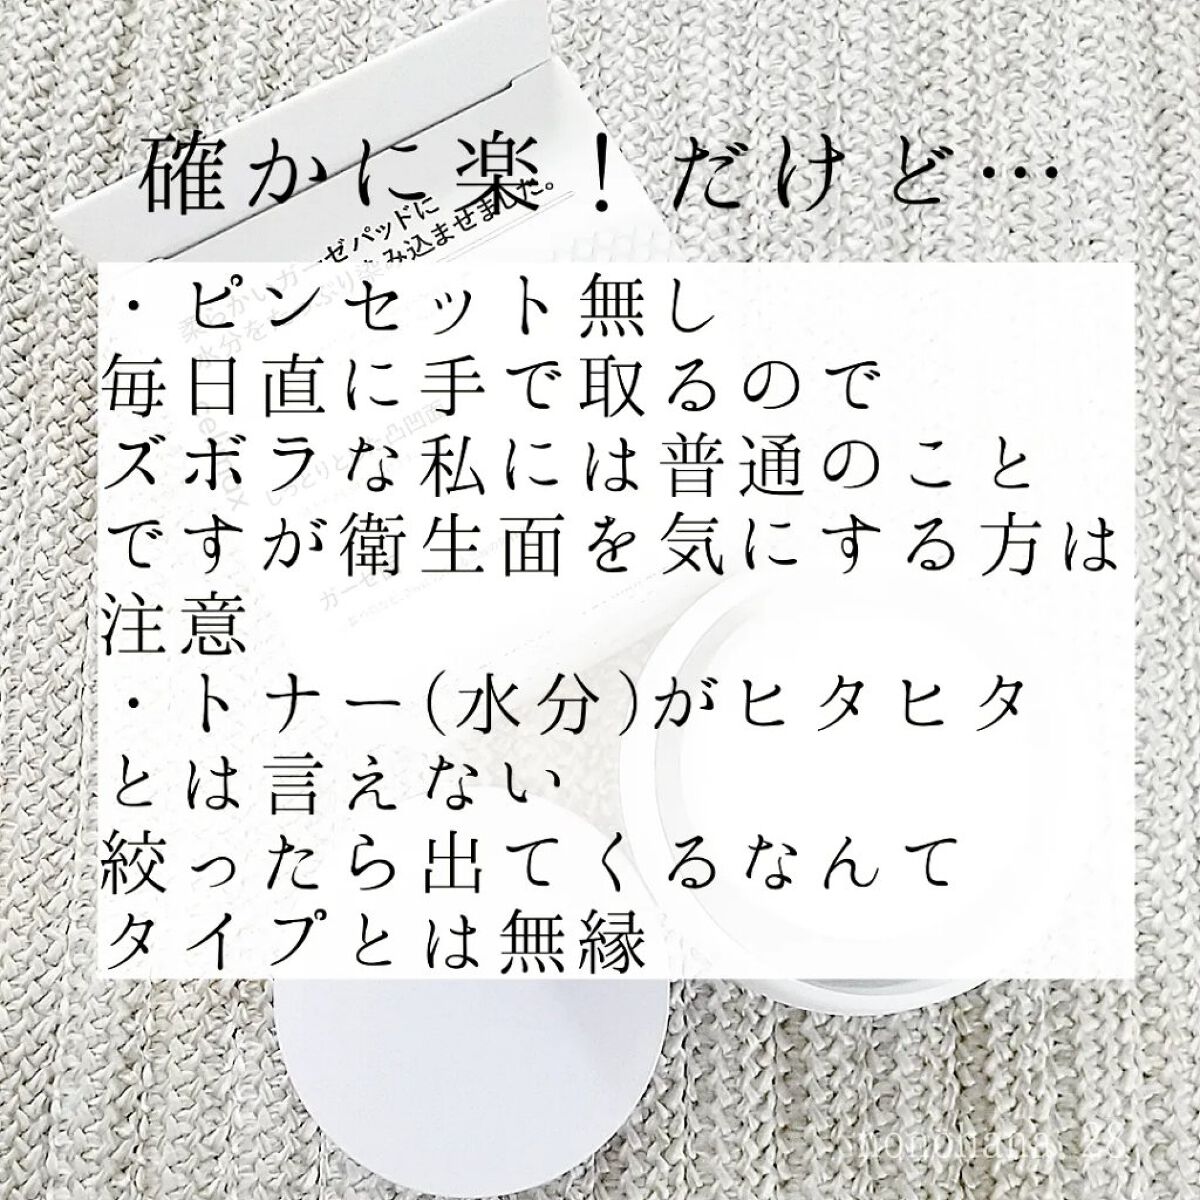 確かに楽！だけど…
ーゼパッドに
み込ませました。
・ピンセット無し
毎日直に手で取るので
ズボラな私には普通のこと
ですが衛生面を気にする方は
注意
・トナー(水分)がヒタヒタ
とは言えない
絞ったら出てくるなんて
タイプとは無縁
nonohana_28